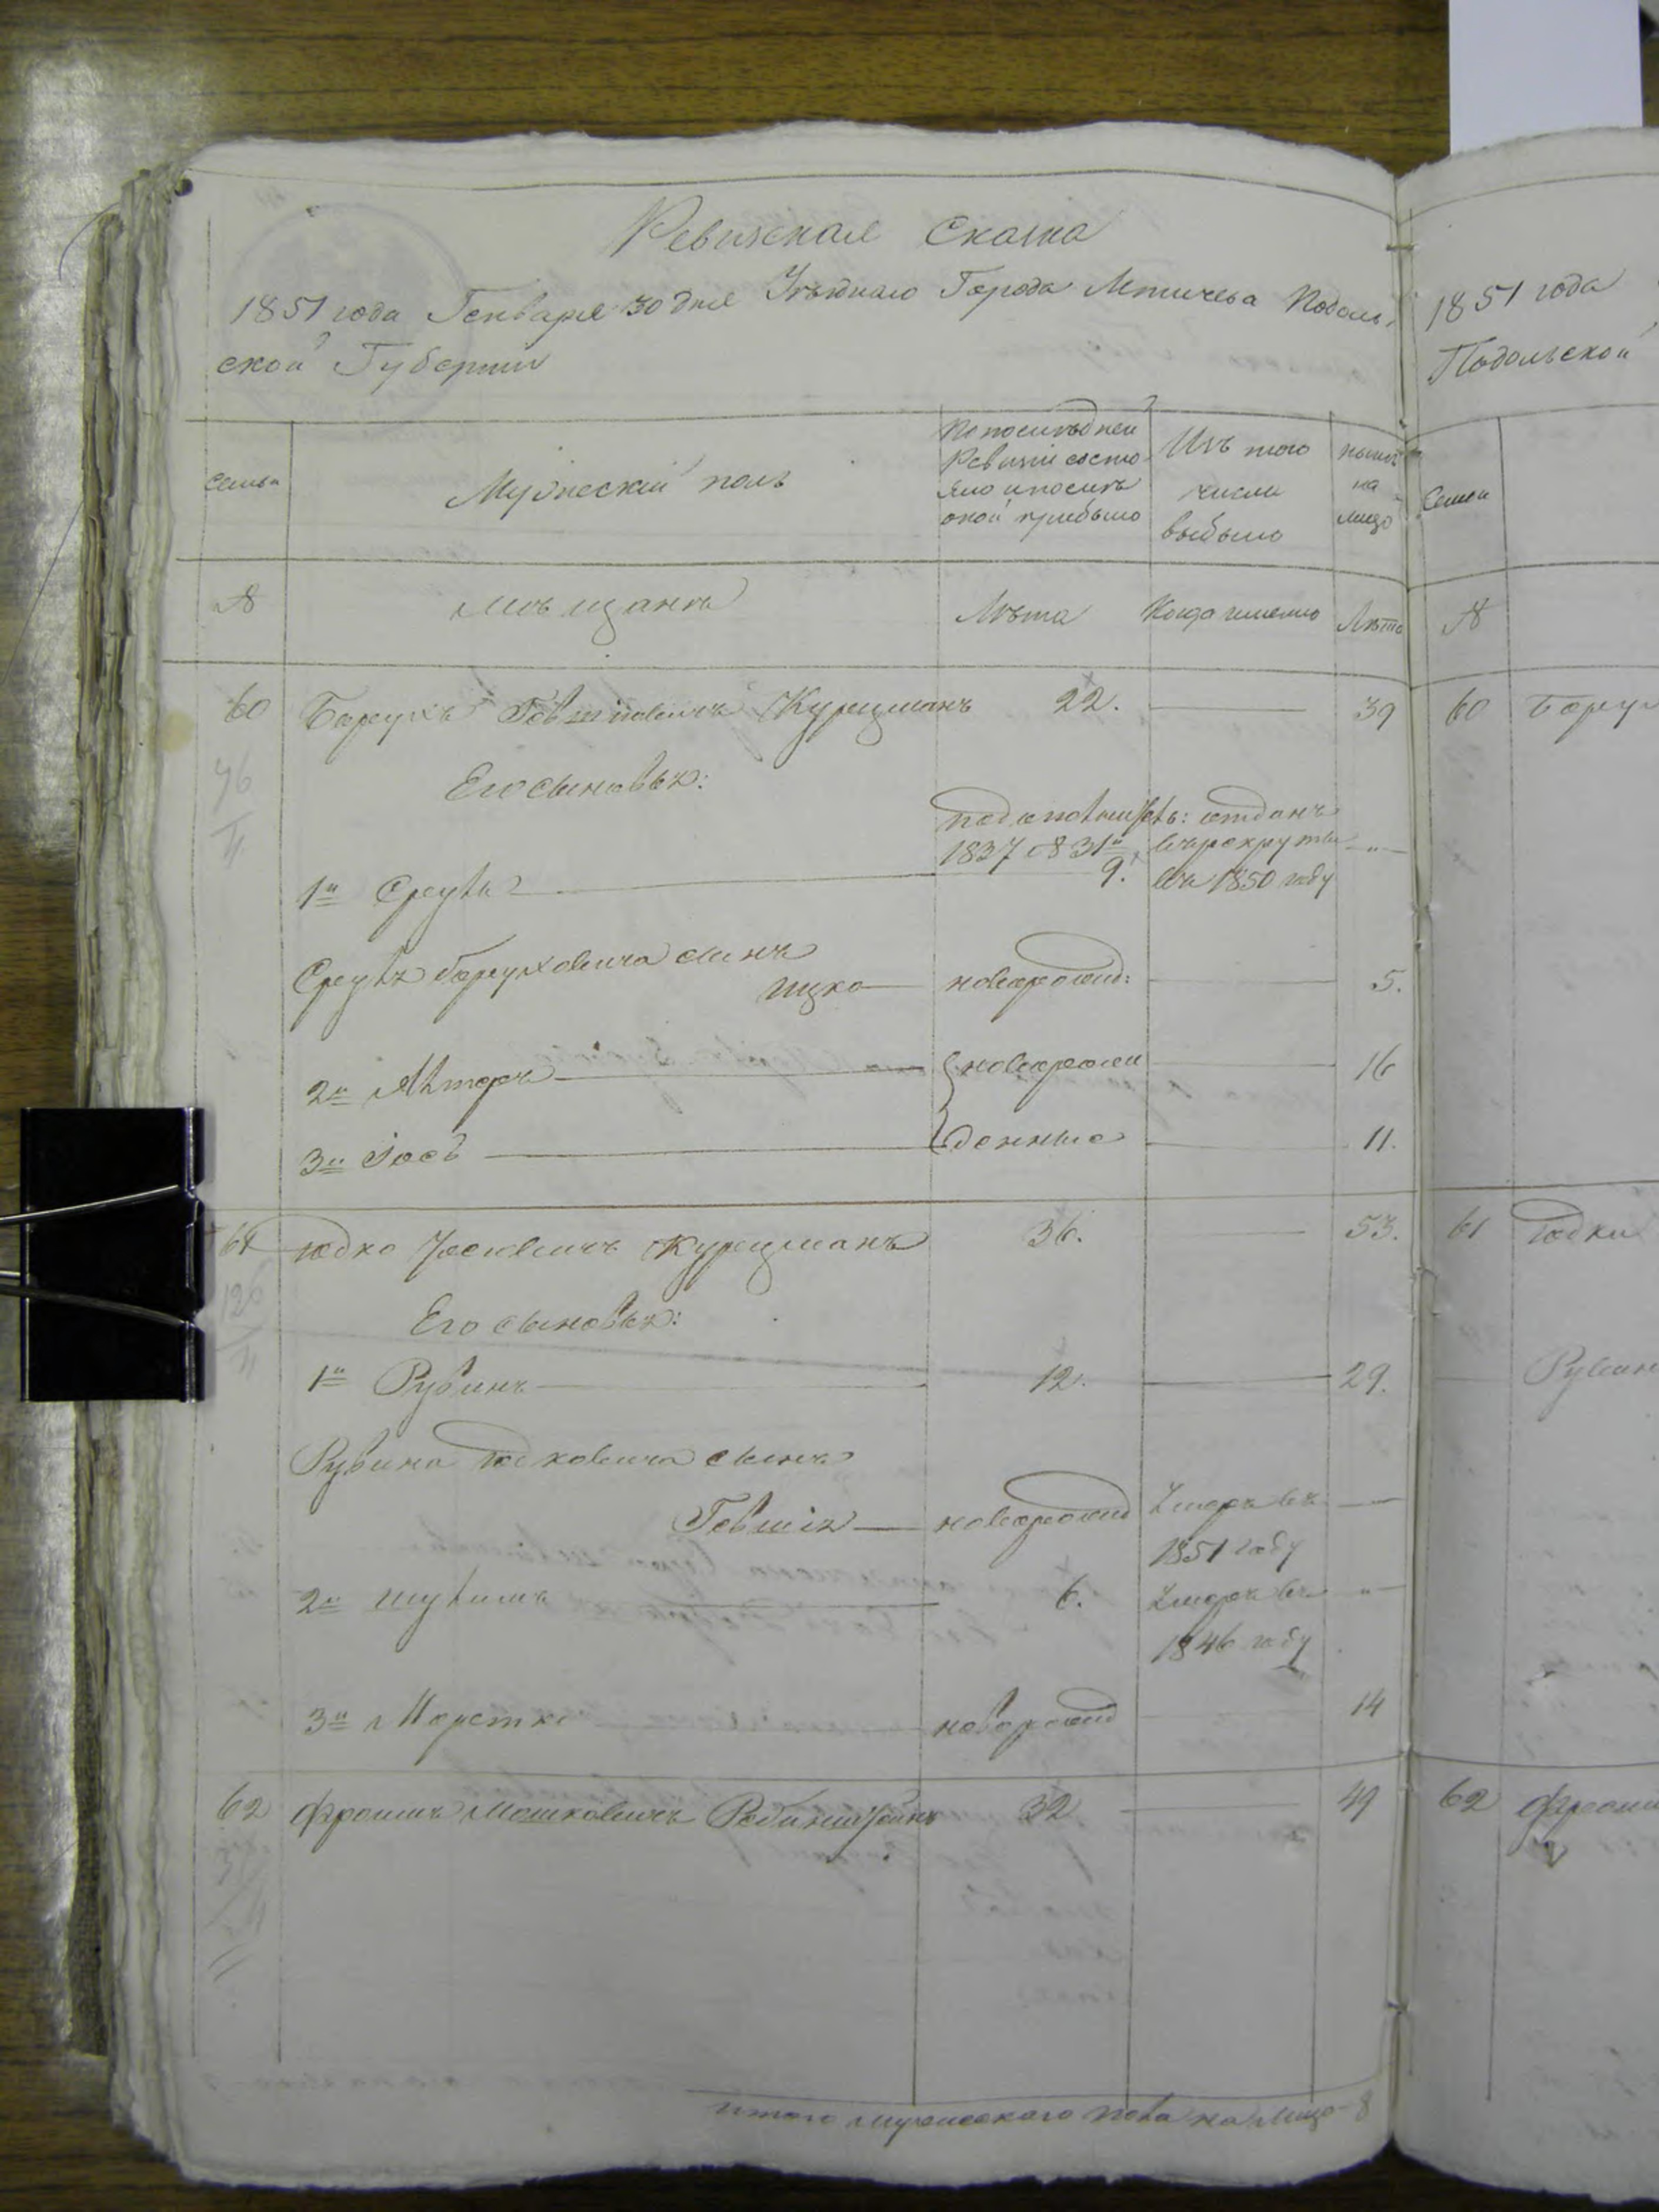 Ревизская Сказка
1851 года Генваря 30 дня Уѣзднаго Города Летичева Подоль-
ской Губерніи
Семьи
Мужескій полъ
По послѣдней
Ревизіи состо
яло и послѣ
оной прибыло
Изъ того
числа
выбыло
нынѣ
на
лицо
№
мѣщанъ
Лѣта
Когда именно
Лѣта
60 Борухъ Гершковичъ Курцманъ 22. 39
Его сыновья:
1837 № 31й
отданъ
въ рекруты
9. въ 1850 году
1й Сруль
Сруля Боруховича сынъ
Ицко новорожд: 5.
2й новорож 16
3й Іось денные 11.
61 Юдко Іосіовичъ Курцманъ 36. 53.
Его сыновья:
1й Рувинъ 12. 29.
Рувина Юдковича сынъ
Гевшія новорожд Умеръ въ
1851 году
2й Шулимъ 6. Умеръ въ
1846 году
3й новорожд 14
62 Фроимъ Мошковичъ 32 49
итого мужескаго пола на лицо 8
1851 года
Подольской
Семьи
№
60 Борух
61 Юдки
Рувин
62 Фроим